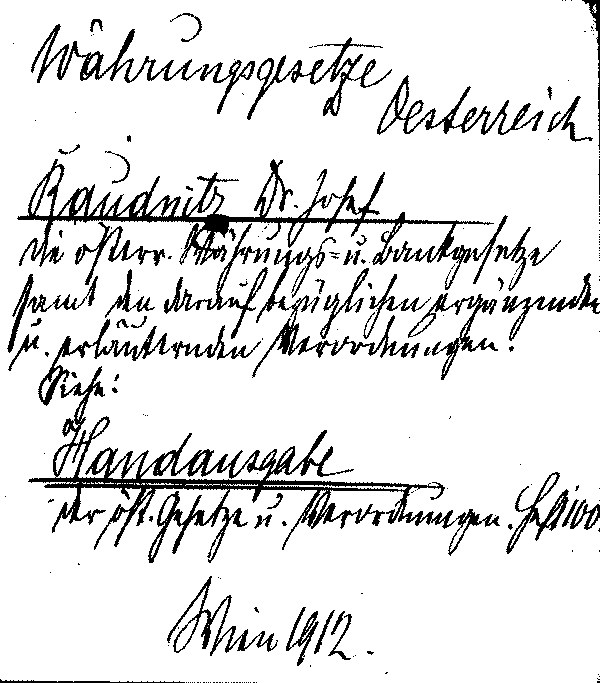 Währungsgesetze
Oesterreich
Raudnitz Dr. Josef
die österr. Währungs- u. Bankgesetze
samt den darauf bezüglichen ergänzenden
u. erläuternden Verordnungen.
Siehe:
Handausgabe
der öst. Gesetze u. Verordnungen. Heft 100
Wien 1912.